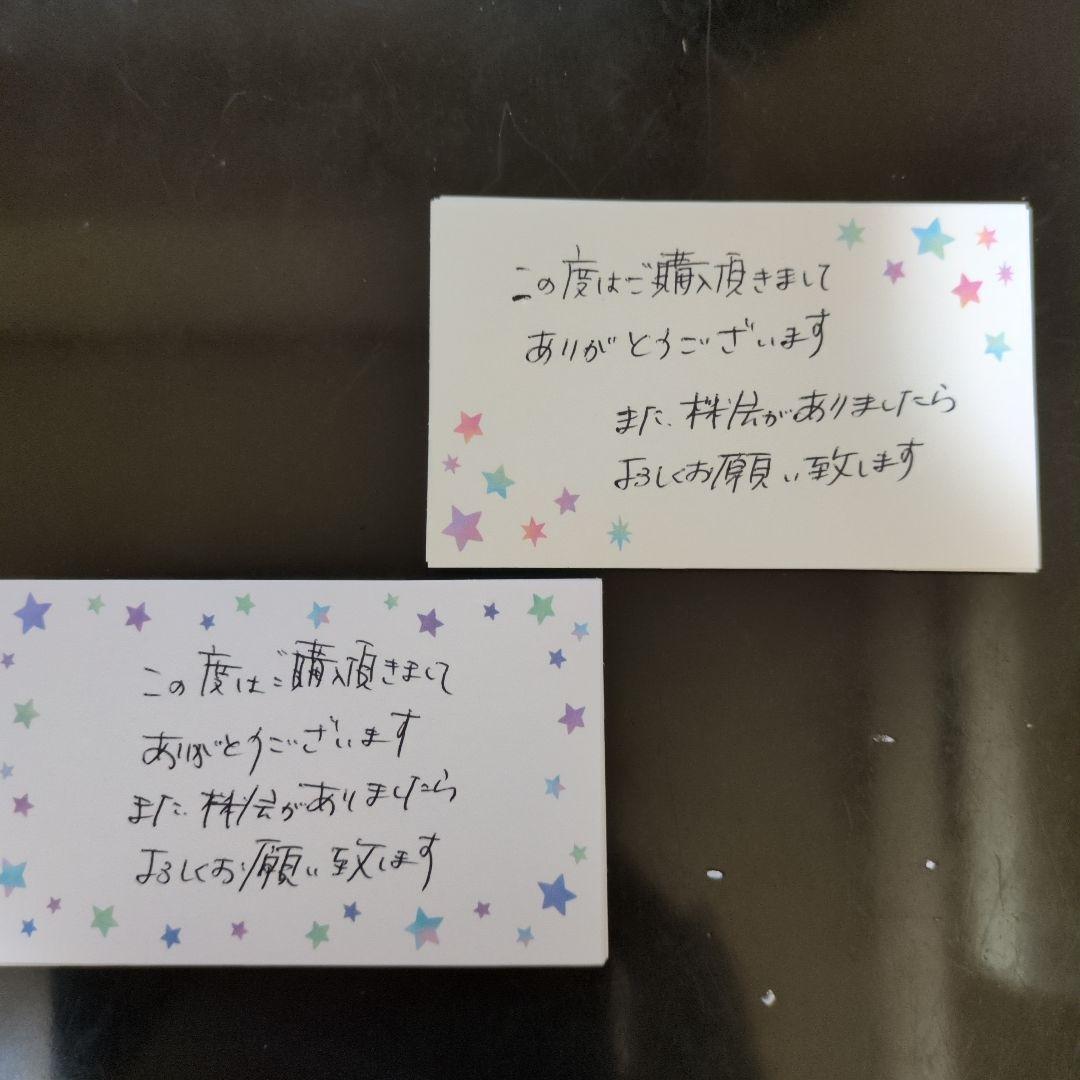 この度はご購入頂きまして
ありがとうございます
また、機会がありましたら
よろしくお願い致します
この度はご購入頂きまして
ありがとうございます
また、機会がありましたら
よろしくお願い致します